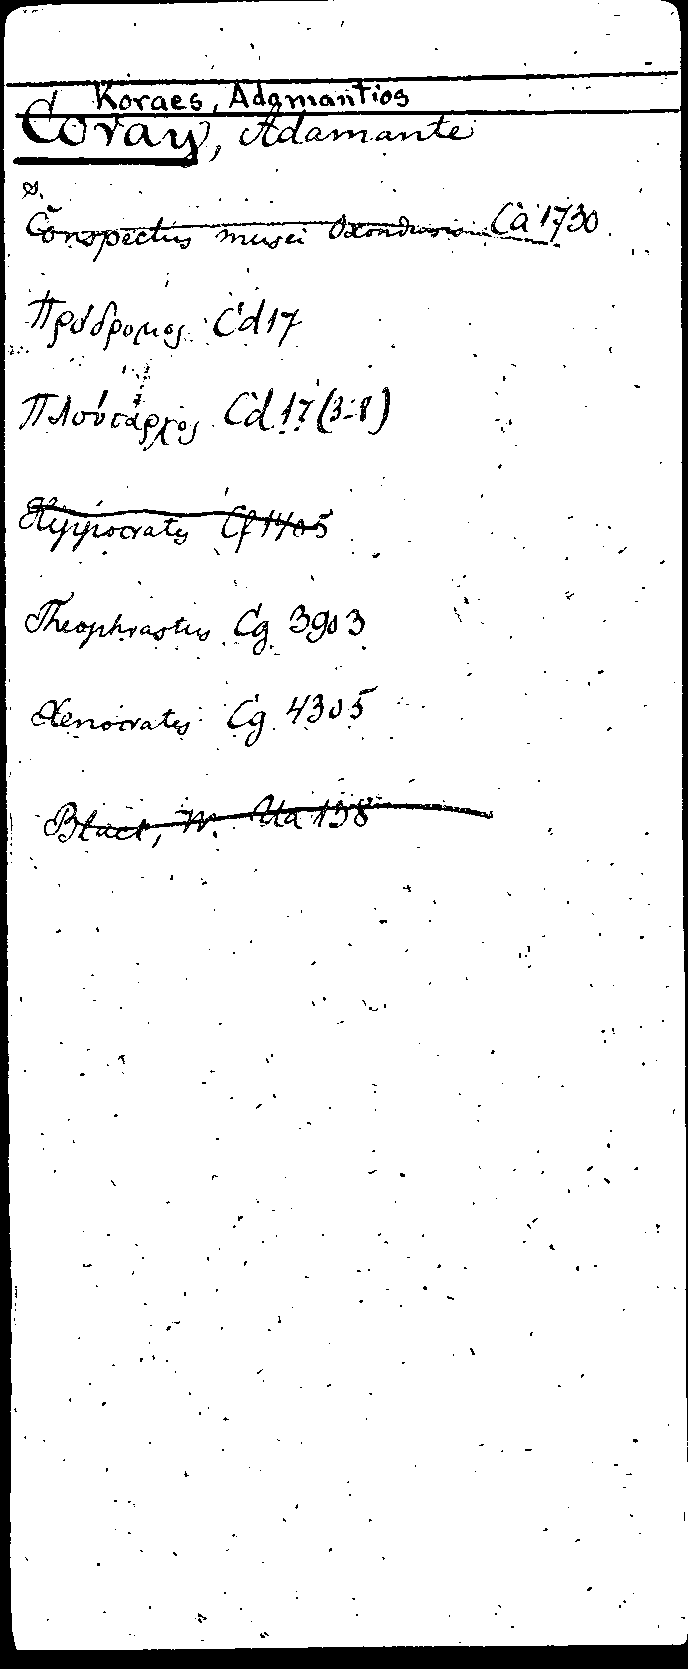 Koraes, Adamantios
Coray, Adamante
s.
Conspectus musei Oxondiensis Ca 1730
Πρόδρομος Cd 17
Πλούταρχος Cd 17 (3-8)
Hippocrates Cf 1405
Theophrastus Cg 3903
Xenocrates Cg 4305
Black, W. Ua 138